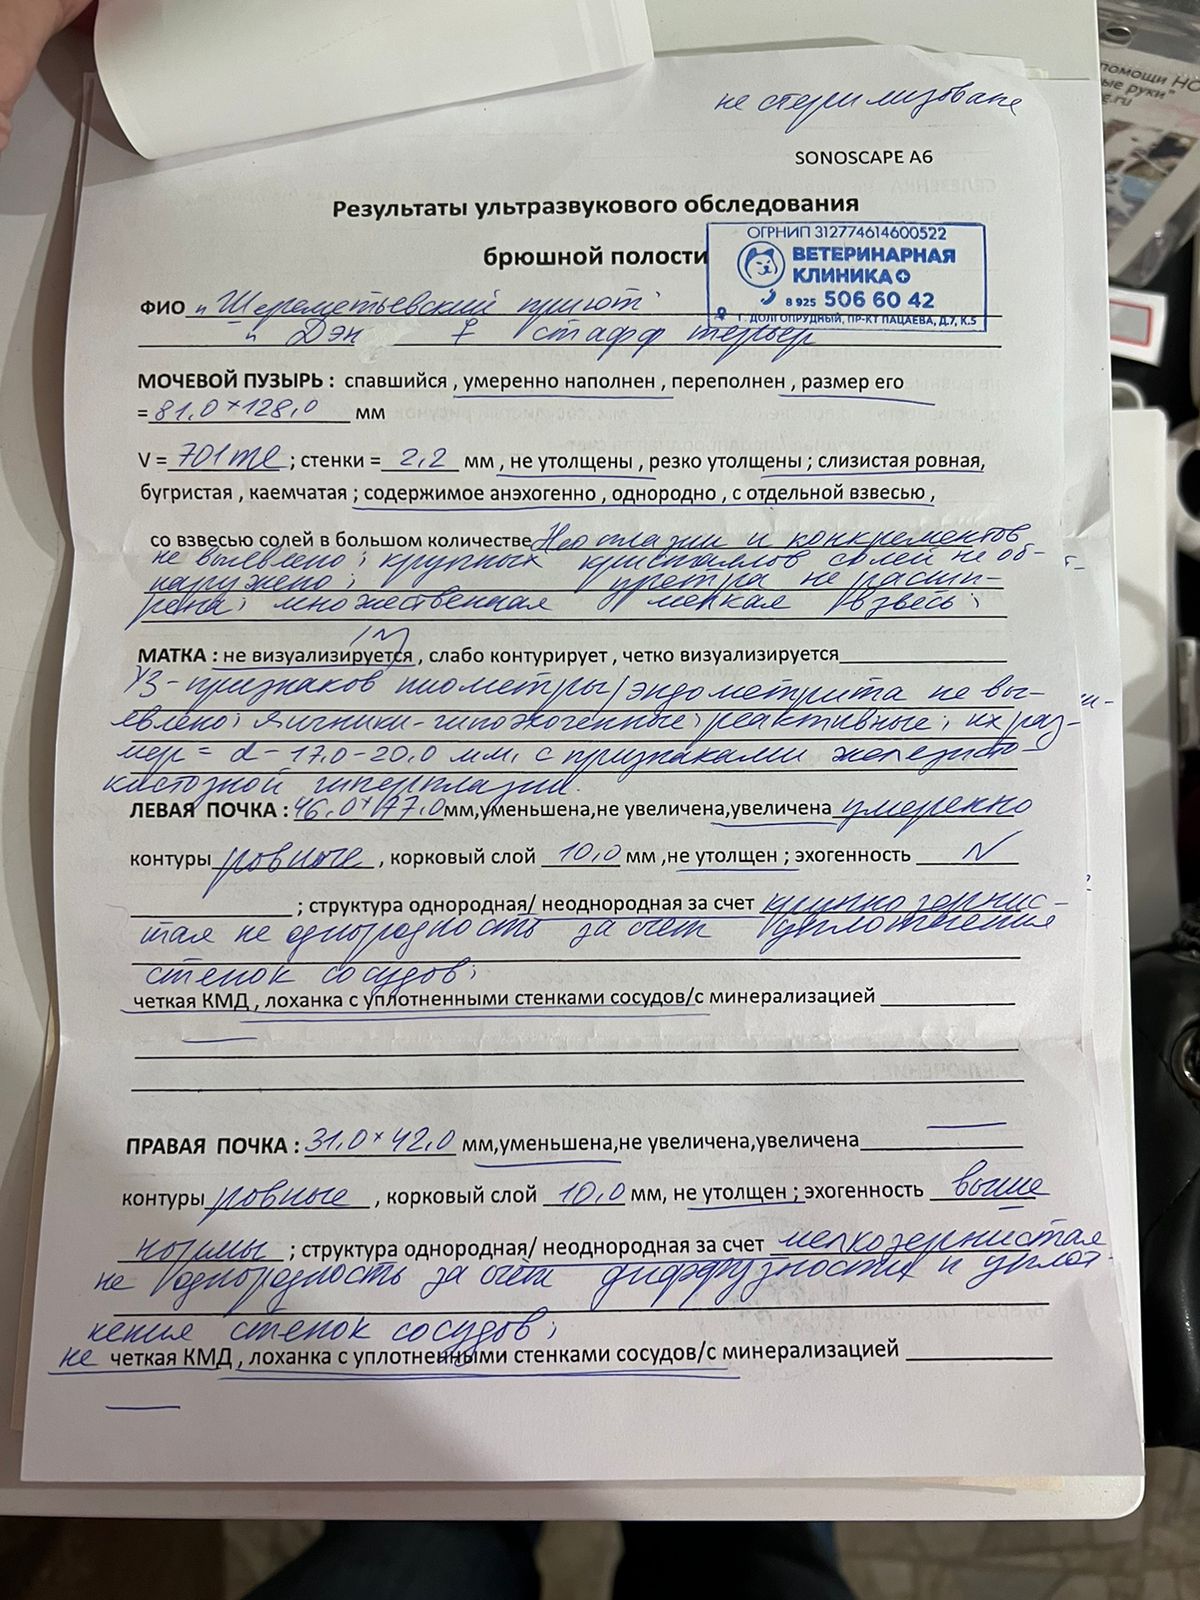 не стерилизована
SONOSCAPE A6
Результаты ультразвукового обследования
брюшной полости
ОГРНИП 312774614600522
ВЕТЕРИНАРНАЯ
КЛИНИКА
8 925 506 60 42
Г. ДОЛГОПРУДНЫЙ, ПР-КТ ПАЦАЕВА, Д.7, К.5
ФИО "Шереметьевский приют"
Дэн ♀ стафф терьер
МОЧЕВОЙ ПУЗЫРЬ : спавшийся , умеренно наполнен , переполнен , размер его
= 81,0 × 128,0 мм
V = 701 ml ; стенки = 2,2 мм , не утолщены , резко утолщены ; слизистая ровная,
бугристая , каемчатая ; содержимое анэхогенно , однородно , с отдельной взвесью ,
со взвесью солей в большом количестве Неоплазии и конкрементов
не выявлено; крупных кристаллов солей не об-
наружено; уретра не расши-
рена; множественная мелкая взвесь;
МАТКА : не визуализируется , слабо контурирует , четко визуализируется
УЗ-признаков пиометры/эндометрита не вы-
явлено; яичники-гипоэхогенные; реактивные; их раз-
мер = d - 17,0-20,0 мм, с признаками железисто-
кистозной гиперплазии.
ЛЕВАЯ ПОЧКА : 46,0 × 77,0 мм,уменьшена,не увеличена,увеличена умеренно
контуры ровные , корковый слой 10,0 мм ,не утолщен ; эхогенность N
; структура однородная/ неоднородная за счет крупнозернис-
тая неоднородность за счет уплотнения
стенок сосудов;
четкая КМД , лоханка с уплотненными стенками сосудов/с минерализацией
ПРАВАЯ ПОЧКА : 31,0 × 42,0 мм,уменьшена,не увеличена,увеличена
контуры ровные , корковый слой 10,0 мм, не утолщен ; эхогенность выше
нормы ; структура однородная/ неоднородная за счет мелкозернистая
неоднородность за счет диффузности и уплот-
нения стенок сосудов;
не четкая КМД , лоханка с уплотненными стенками сосудов/с минерализацией